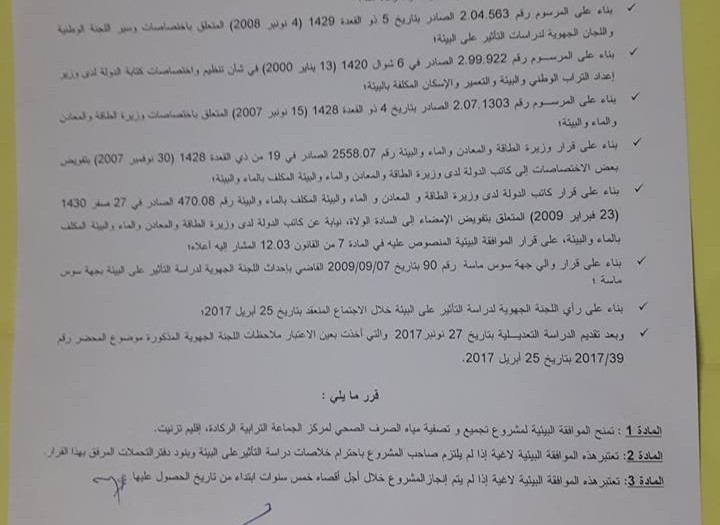 ✓ بناء على المرسوم رقم 2.04.563 الصادر بتاريخ 5 ذو القعدة 1429 (4 نونبر 2008) المتعلق باختصاصات وسير اللجنة الوطنية
واللجان الجهوية لدراسات التأثير على البيئة؛
✓ بناء على المرسوم رقم 2.99.922 الصادر في 6 شوال 1420 (13 يناير 2000) في شأن تنظيم واختصاصات كتابة الدولة لدى وزير
إعداد التراب الوطني والبيئة والتعمير والإسكان المكلفة بالبيئة؛
✓ بناء على المرسوم رقم 2.07.1303 الصادر بتاريخ 4 ذو القعدة 1428 (15 نونبر 2007) المتعلق باختصاصات وزيرة الطاقة والمعادن
والماء والبيئة؛
✓ بناء على قرار وزيرة الطاقة والمعادن والماء والبيئة رقم 2558.07 الصادر في 19 من ذي القعدة 1428 (30 نوفمبر 2007) بتفويض
بعض الاختصاصات إلى كاتب الدولة لدى وزيرة الطاقة والمعادن والماء والبيئة المكلف بالماء والبيئة؛
✓ بناء على قرار كاتب الدولة لدى وزيرة الطاقة و المعادن و الماء والبيئة المكلف بالماء والبيئة رقم 470.08 الصادر في 27 صفر 1430
(23 فبراير 2009) المتعلق بتفويض الإمضاء إلى السادة الولاة، نيابة عن كاتب الدولة لدى وزيرة الطاقة والمعادن والماء والبيئة المكلف
بالماء والبيئة، على قرار الموافقة البيئية المنصوص عليه في المادة 7 من القانون 12.03 المشار إليه أعلاه؛
✓ بناء على قرار والي جهة سوس ماسة رقم 90 بتاريخ 2009/09/07 القاضي بإحداث اللجنة الجهوية لدراسة التأثير على البيئة بجهة سوس
ماسة ؛
✓ بناء على رأي اللجنة الجهوية لدراسة التأثير على البيئة خلال الاجتماع المنعقد بتاريخ 25 أبريل 2017؛
✓ وبعد تقديم الدراسة التعديلية بتاريخ 27 نونبر2017 والتي أخذت بعين الاعتبار ملاحظات اللجنة الجهوية المذكورة موضوع المحضر رقم
2017/39 بتاريخ 25 أبريل 2017.
قرر ما يلي :
المادة 1 : تمنح الموافقة البيئية لمشروع تجميع و تصفية مياه الصرف الصحي لمركز الجماعة الترابية الركادة، إقليم تزنيت.
المادة 2: تعتبر هذه الموافقة البيئية لاغية إذا لم يلتزم صاحب المشروع باحترام خلاصات دراسة التأثير على البيئة وبنود دفتر التحملات المرفق بهذا القرار.
المادة 3: تعتبر هذه الموافقة البيئية لاغية إذا لم يتم إنجاز المشروع خلال أجل أقصاه خمس سنوات ابتداء من تاريخ الحصول عليها